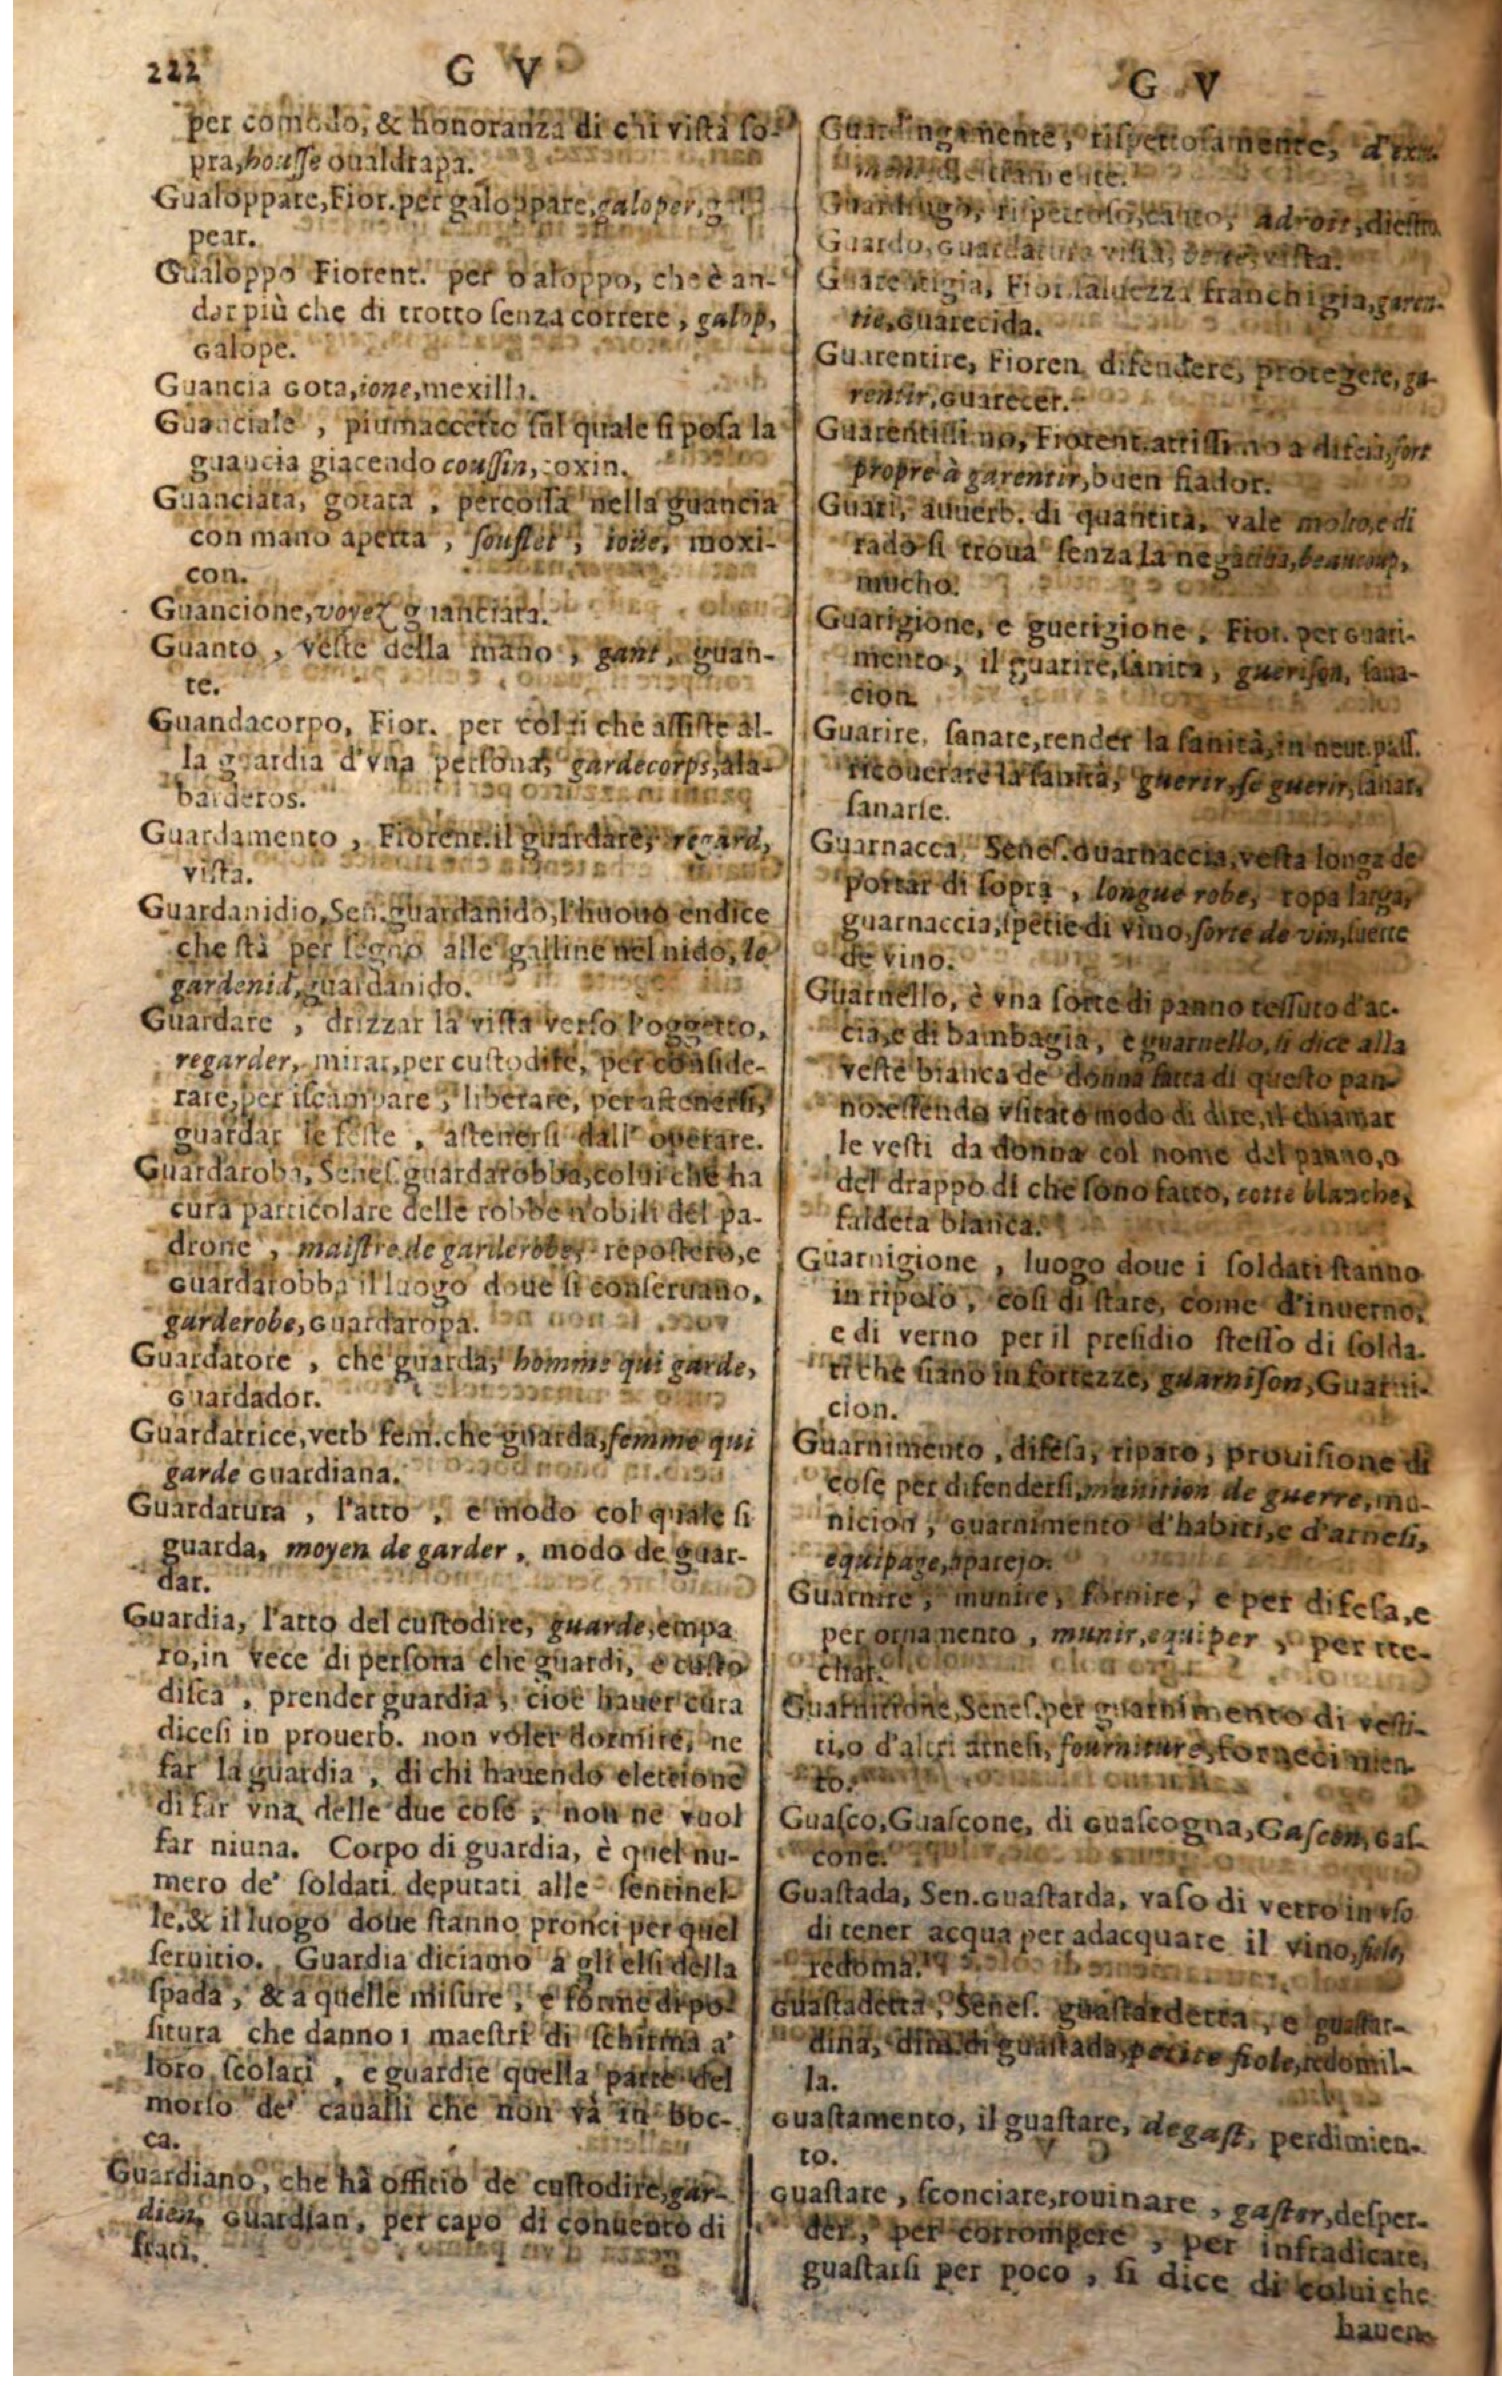 222 G V
per comodo, & honoranza di chi vi stà so-
pra, housse oualdrapa.
Gualoppare, Fior. per galoppare, galoper,
pear.
Gualoppo Fiorent. per galoppo, che è an-
dar più che di trotto senza correre, galop,
Galope.
Guancia Gota, ioue, mexilla.
Guanciale, piumaccetto sul quale si posa la
guancia giacendo coussin, coxin.
Guanciata, gotata, percossa nella guancia
con mano aperta, soufflet, ioüe, moxi-
con.
Guancione, voyez guanciata.
Guanto, veste della mano, gant, guan-
te.
Guandacorpo, Fior. per colui che assiste al-
la guardia d'vna persona, gardecorps, ala-
barderos.
Guardamento, Fiorent. il guardare, regard,
vista.
Guardanidio, Sen. guardanido, l'huouo endice
che stà per segno alle galline nel nido, le
gardenid, guardanido.
Guardare, drizzar la vista verso l'oggetto,
regarder, mirar, per custodire, per conside-
rare, per iscampare, liberare, per astenersi,
guardar le feste, astenersi dall' operare.
Guardaroba, Senes. guardarobba, colui che ha
cura particolare delle robbe nobili del pa-
drone, maistre de garderobe, repostero, e
Guardarobba il luogo doue si conseruano,
garderobe, Guardaropa.
Guardatore, che guarda, homme qui garde,
Guardador.
Guardatrice, verb fem. che guarda, femme qui
garde Guardiana.
Guardatura, l'atto, e modo col quale si
guarda, moyen de garder, modo de guar-
dar.
Guardia, l'atto del custodire, guarde, empa
ro, in vece di persona che guardi, e custo
disca, prender guardia, cioè hauer cura
dicesi in prouerb. non voler dormire, ne
far la guardia, di chi hauendo elettione
di far vna delle due cose, non ne vuol
far niuna. Corpo di guardia, è quel nu-
mero de' soldati deputati alle sentinel-
le, & il luogo doue stanno pronti per quel
seruitio. Guardia diciamo a gli elsi della
spada, & a quelle misure, e forme di po-
situra che danno i maestri di schirma a'
loro scolari, e guardie quella parte del
morso de' caualli che non và in boc-
ca.
Guardiano, che hà officio de custodire, gar-
dien, Guardian, per capo di conuento di
frati.
G V
Guardingamente, rispettosamente,
Guardingo, rispettoso, cauto, adroit, diestro
Guardo, Guardatura vista, vista.
Guarentigia, Fior. saluezza franchigia, garen-
tie, Guarecida.
Guarentire, Fioren. difendere, proteggere, ga-
rentir, Guarecer.
Guarentissimo, Fiorent. attissimo a difesa, fort
propre à garentir, buen fiador.
Guari, auuerb. di quantità, vale molto, e di
rado si troua senza la negatiua, beaucoup,
mucho.
Guarigione, e guerigione, Fior. per Guari-
mento, il guarire, sanità, guerison, sana-
cion.
Guarire, sanare, render la sanità, in neut. pass.
ricouerare la sanità, guerir, se guerir, sanar,
sanarse.
Guarnacca, Senes. Guarnaccia, vesta longa de
portar di sopra, longue robe, ropa larga,
guarnaccia, spetie di vino, sorte de vin, suerte
de vino.
Guarnello, è vna sorte di panno tessuto d'ac-
cia, e di bambagia, e guarnello, si dice alla
veste bianca de donna fatta di questo pan-
no: essendo vsitato modo di dire, il chiamar
le vesti da donna col nome del panno, o
del drappo di che sono fatto, cotte blanche,
faldeta blanca.
Guarnigione, luogo doue i soldati stanno
in riposo, così di state, come d'inuerno,
e di verno per il presidio stesso di solda-
ti che siano in fortezze, guarnison, Guarni-
cion.
Guarnimento, difesa, riparo, prouisione di
cose per difendersi, munition de guerre, mu-
nicion, Guarnimento d'habiti, e d'arnesi,
equipage, aparejo.
Guarnire, munire, fornire, e per difesa, e
per ornamento, munir, equiper, per tre-
char.
Guarnitione, Senes. per guarnimento di vesti-
ti, o d'altri arnesi, fourniture, fornecimien-
to.
Guasco, Guascone, di Guascogna, Gascon, Gas-
cone.
Guastada, Sen. Guastarda, vaso di vetro in vso
di tener acqua per adacquare il vino, fiole,
redoma.
Guastadetta, Senes. guastardetta, e guastar-
dina, dim. di guastada, petite fiole, redomil-
la.
Guastamento, il guastare, degast, perdimien-
to.
Guastare, sconciare, rouinare, gaster, desper-
der, per corrompere, per infradicare,
guastarsi per poco, si dice di colui che
hauen-